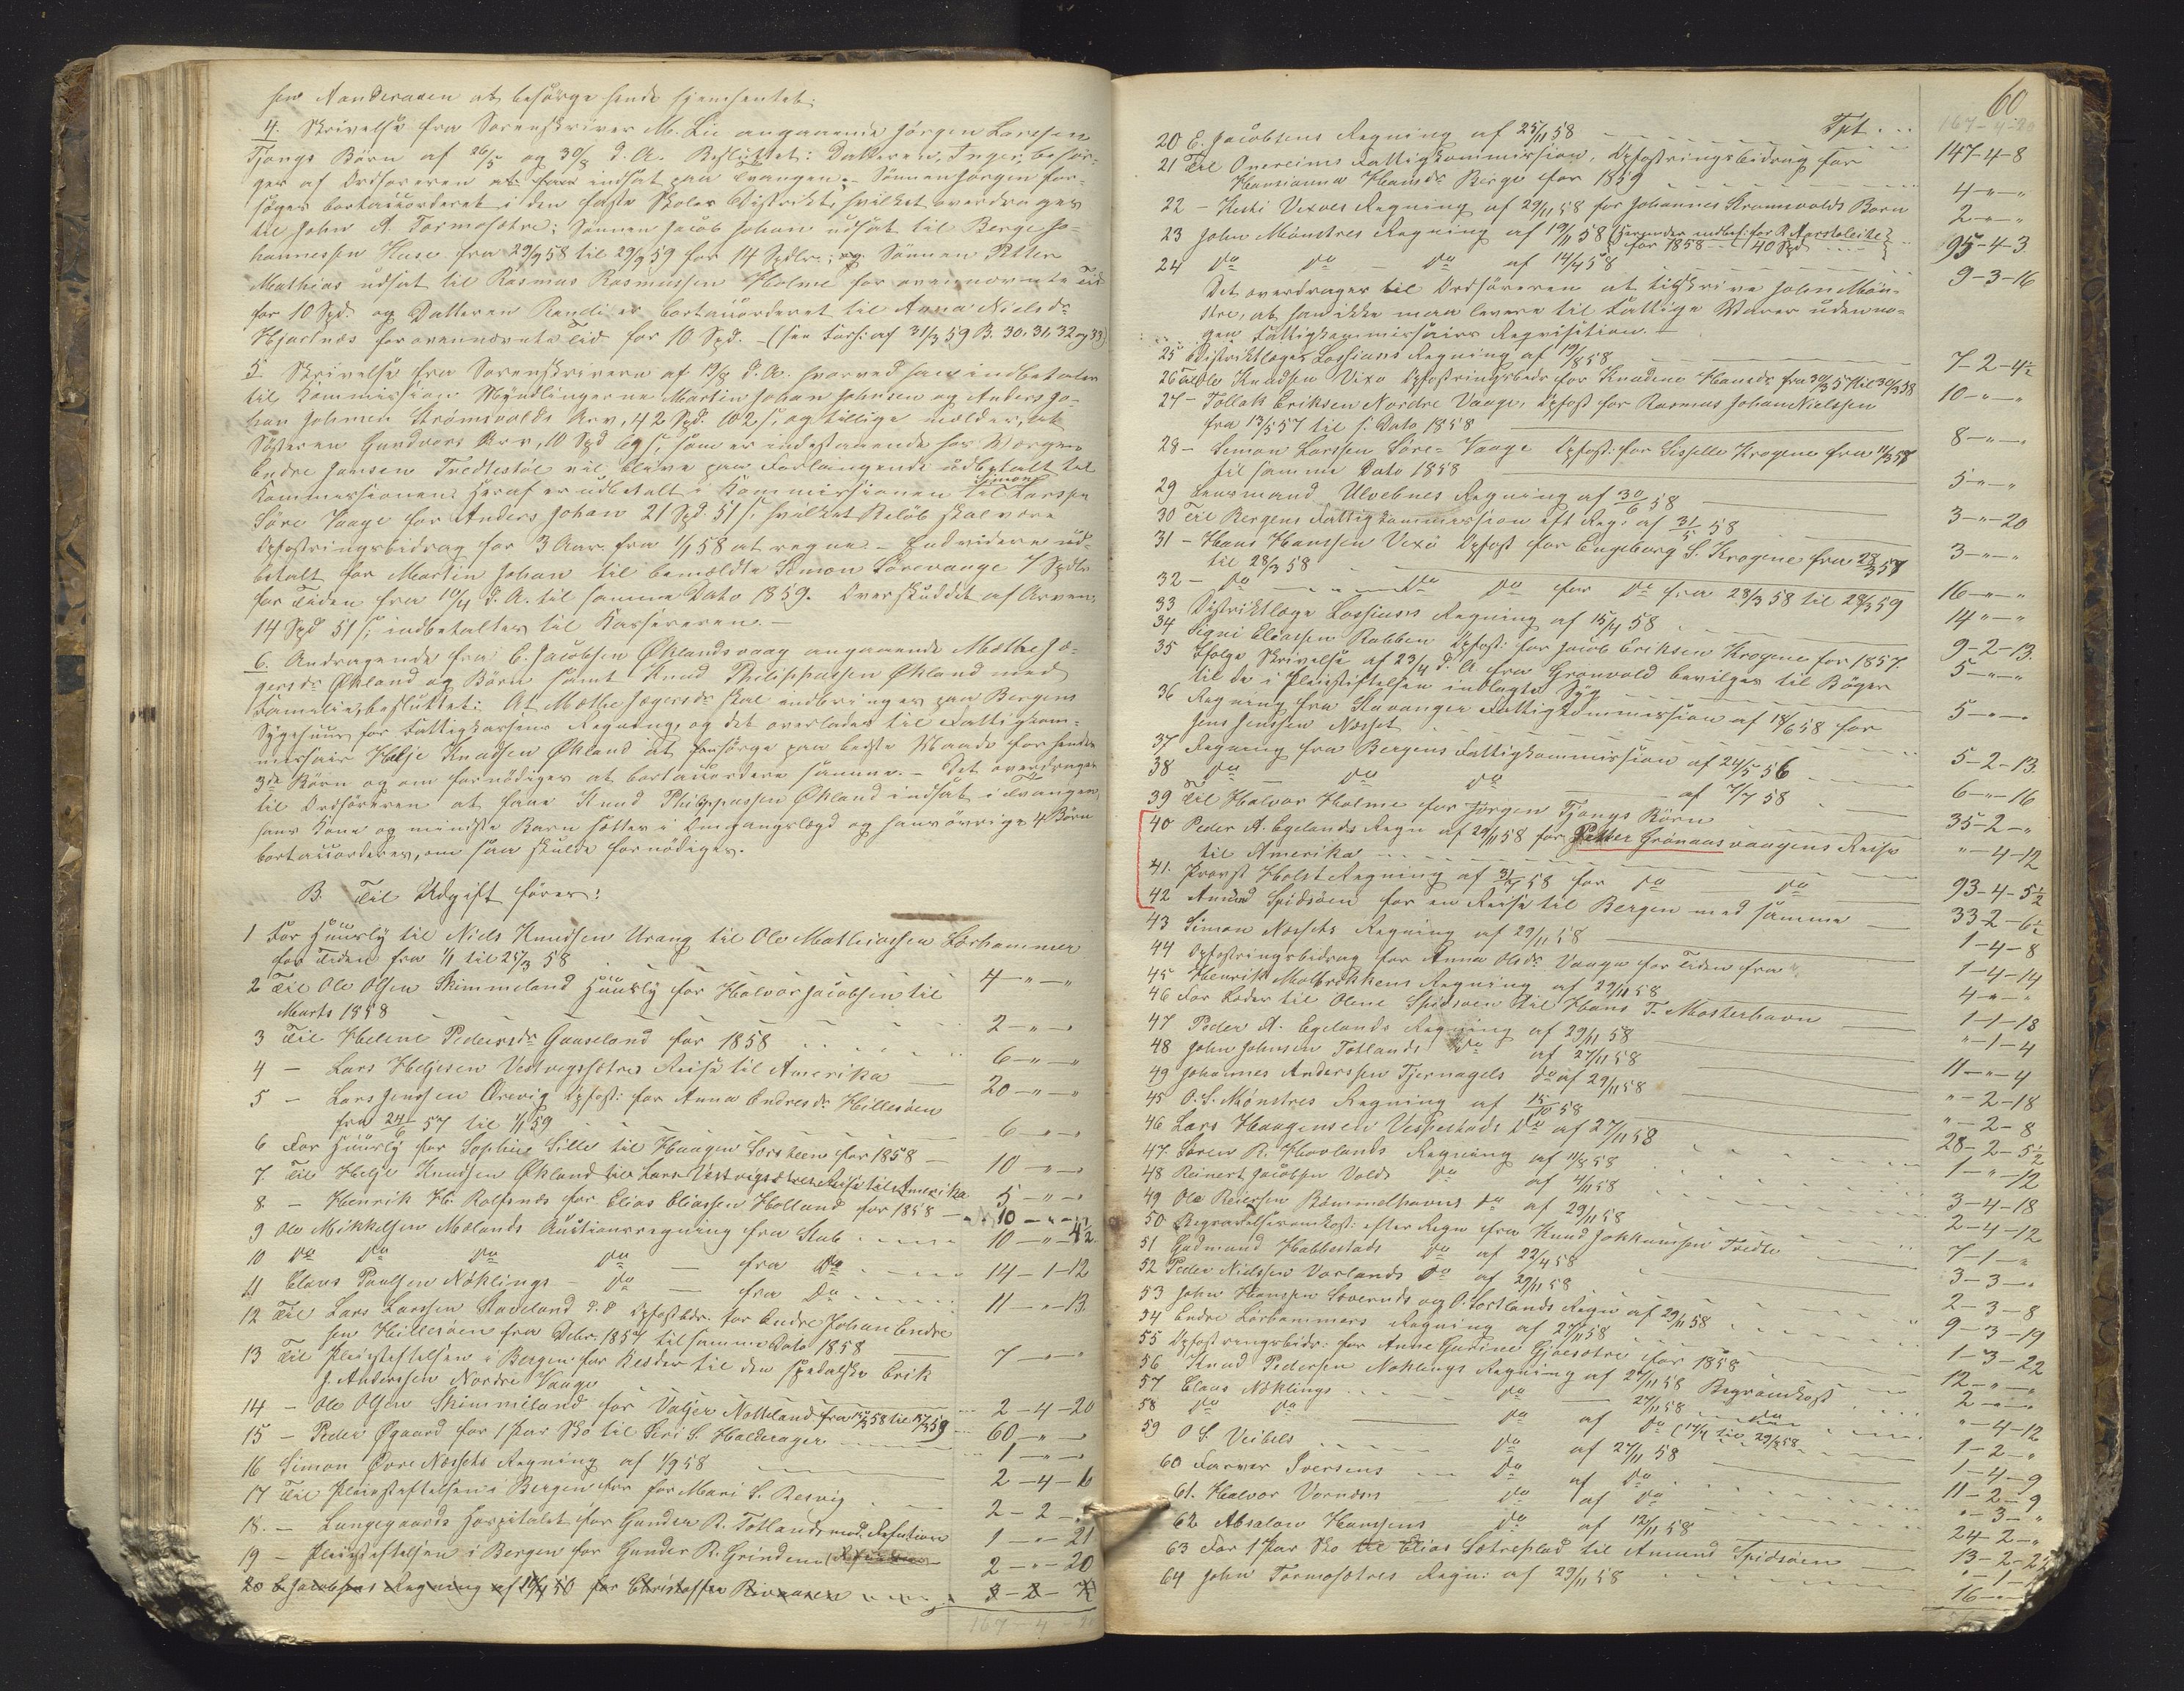 hen Nanderaaen at besørge hende hjemhentet.
4. Skrivelse fra Sorenskriver M. Lie angaaende Jørgen Larssen
Tjongs Børn af 26/5 og 30/8 d. A. Besluttet: Datteren, Inger, besør-
ges af Ordføreren at faae indsat paa Svangen. Sønnen Jørgen for-
søges bortaccorderet i den faste Skoles Distrikt, hvilket overdrages
til John A. Tormosætre; Sønnen Jacob Johan udsat til Berge Jo-
hannessen Huse fra 29/9 58 til 29/9 59 for 14 Spdlr.; og Sønnen Peter
Mathias udsat til Rasmus Rasmussen Holme for ovennævnte Tid
for 10 Spd. og Datteren Randi er bortaccorderet til Anna Nielsdr
Hjartnæs for ovennævnte Tid for 10 Spd. – (see Forh: af 31/3 59 B. 30, 31, 32 og 33)
5. Skrivelse fra Sorenskriveren af 19/8 d. A. hvorved han indbetaler
til Kommissionen Myndlingerne Martin Johan Johnsen og Anders Jo-
han Johnsen Strømsvolds Arv, 42 Spd. 102 s, og tillige melder, at
Søsteren Gundvors Arv, 10 Spd 69 s, som er indestaaende hos Værgen
Endre Jansen Tredtestøl vil blive paa Forlangende udbetalt til
Kommissionen. Heraf er udbetalt i Kommissionen til Simon Larssen
Søre Vaage for Anders Johan 21 Spd. 51 s, hvilket Beløb skal være
Opfostringsbidrag for 3 Aar fra 1/1 58 at regne. – Endvidere ud-
betalt for Martin Johan til bemeldte Simon Sørevaage 7 Spdlr
for Tiden fra 10/4 d. A. til samme Dato 1859. Overskuddet af Arven,
14 Spd 51 s, indbetaltes til Kassereren. –
6. Andragende fra E. Jacobsen Øklandsvaag angaaende Mæthe Jæ-
gersdr Økland og Børn samt Knud Philippussen Økland med
Familie, besluttet: At Mæthe Jægersdr skal indbringes paa Bergens
Sygehuus for Fattigkassens Regning, og det overlades til Fattigkom-
missair Helje Knudsen Økland at forsørge paa bedste Maade for hendes
3de Børn og om fornødiges at bortaccordere samme. – Det overdrages
til Ordføreren at faae Knud Philippussen Økland indsat i Svangen,
hans Kone og mindste Barn sættes i Omgangslægd og hans øvrige 4 Børn
bortaccorderes, om saa skulde fornødiges.
B. Til Udgift føres:
1 For Huusly til Niels Knudsen Urang til Ole Mathiassen Lørhammer
for Tiden fra 1/1 til 25/3 58 4 – " – "
2 Til Ole Olsen Skimmeland Huusly for Halvor Jacobsen til
Marts 1858 2 – " – "
3 Til Helene Pedersdr Gaaseland for 1858 6 – " – "
4 – Lars Heljesen Vestvigsætres Reise til Amerika 20 – " – "
5 – Lars Jenssen Ørevig Opfost: for Anna Endresdr Hillesøen
fra 24/6 57 til 1/1 59 6 – " – "
6 For Huusly for Sophie Sille til Haagen Sørsteen for 1858 10 – " – "
7 Til Helje Knudsen Økland til Lars Vestvigsætres Reise til Amerika 5 – " – "
8 – Henrik H. Rolfsnæs for Elias Eliassen Holland for 1858 10 – " – "
9 Ole Mikkelsen Mælands Auctionsregning fra Stab 10 – " – 4 1/2
10 do do do do – fra do 14 – 1 – 12
11 Claus Poulsen Nøklings – do – fra do 11 – " – 13
12 Til Lars Larssen Stadeland d. æ Opfostbdr. for Endre Johan Endre
sen Hillesøen fra Debr. 1857 til samme Dato 1858 7 – " – "
13 Til Pleiestiftelsen i Bergen for Klæder til den spedalske Erik
J. Andersen Nordre Vaage 2 – 4 – 20
14 – Ole Olsen Skimmeland for Valjer Nottveland fra 15/3 58 til 15/3 59 60 – " – "
15 – Peder Øgaard for 1 Par Sko til Siri S. Halderager 1 – " – "
16 Simon Øvre Næssets Regning af 1/9 58 2 – 4 – 16
17 Til Pleiestiftelsen i Bergen for Mari S. Resvig 2 – 2 – "
18 – Lungegaards Hospitalet for Gunder R. Totlands med. Refution 1 – " – 21
19 – Pleiestiftelsen i Bergen for Gunder R. Grindem (Refution 2 – " – 20
20 E. Jacobsens Regning af 14/4 58 for Christoffer Rivenæs 3 – 2 – 7
167 – 4 – 20
60
Tpt. 167 – 4 – 20
20 E. Jacobsens Regning af 25/11 58 147 – 4 – 8
21 Til Ovnereims Fattigkommission, Opfostringsbidrag for
Hansianna Hansdr Berge for 1859 4 – " – "
22 – Kethi Vixøes Regning af 29/11 58 for Johannes Strømsvolds Barn 2 – " – "
23 John Mønstres Regning af 19/11 58 (herunder indbef: for R. Aarsteleite for 1858 – 40 Spd 95 – 4 – 3
24 do do – do af 14/4 58 9 – 3 – 16
Det overdrages til Ordføreren at tilskrive John Møn-
stre, at han ikke maa levere til Fattige Varer uden no-
gen Fattigkommissairs Reqvisition. –
25 Distriktlæge Lossius Regning af 19/8 58 7 – 2 – 4 1/2
26 Til Ole Knudsen Vixø Opfostringsbdr for Knudine Hansdr fra 30/3 57 til 30/3 58 10 – " – "
27 – Tollak Eriksen Nordre Vaage, Opfost for Rasmus Johan Nielssen
fra 13/5 57 til s. Dato 1858 8 – " – "
28 – Simon Larssen Søre-Vaage Opfost: for Sissille Krogene fra 11/3 57
til samme Dato 1858 5 – " – "
29 Lensmand Ulvebnes Regning af 30/6 58 3 – " – 20
30 Til Bergens Fattigkommission eft Reg: af 31/5 58 3 – " – "
31 – Hans Hanssen Vixø Opfost for Engeborg S. Krogene fra 28/3 57
til 28/3 58 16 – " – "
32 – do do do for do fra 28/3 58 til 28/3 59 14 – " – "
33 Distriktlæge Lossiuses Regning af 15/4 58 9 – 2 – 13
34 Signi Eliassen Rabben Opfost: for Jacob Eriksen Krogene for 1857. 5 – " – "
35 Ifølge Skrivelse af 23/4 d. A. fra Grønvold bevilges til Bøger
til de i Pleiestiftelsen indlagte Syge 5 – " – "
36 Regning fra Stavanger Fattigkommission af 18/6 58 for
Jens Jenssen Næsset 5 – 2 – 13
37 Regning fra Bergens Fattigkommission af 24/5 56 6 – " – 16
38 do – do do – af 7/7 58 35 – 2 – "
39 Til Halvor Holme for Jørgen Tjongs Børn " – 4 – 12
40 Peder A. Egelands Regn af 29/11 58 for Petter Grønaasvaagens Reise
til Amerika 93 – 4 – 5 1/2
41. Provst Holst Regning af 31/7 58 for do do 33 2 – 6 1/2
42 Amund Spidsøen for en Reise til Bergen med samme 1 – 4 – 8
43 Simon Næssets Regning af 29/11 58 1 – 4 – 14
44 Opfostringsbidrag for Anna Olsdr Vaage for Tiden fra 4 – " – "
45 Henrik Molbrikkens Regning af 29/11 58 1 – 1 – 18
46 For Læder til Olene Spidsøen til Hans T. Mosterhavn " – 1 – 4
47 Peder A. Egelands Regning af 29/11 58 11 – " – 4
48 John Johnsen Totlands do af 27/11 58 " – 2 – 18
49 Johannes Anderssen Tjernagels do af 29/11 58 " – 2 – 8
45 O. S. Mønstres Regning af 15/10 58 28 – 2 – 5 1/2
46 Lars Haagensen Vespestads do af 27/11 58 1 – " – 12
47. Søren R. Hovlands Regning af 11/8 58 3 – 4 – 18
48 Reinert Jacobsen Volds do af 4/11 58 2 – 4 – 12
49 Ole Reiersen Bømmelhavns do af 29/11 58 7 – 1 – "
50 Begravelsesomkost: efter Regn fra Knud Jokkumsen Tredte 3 – 3 – "
51 Gudmund Habbestads do af 22/4 58 2 – 3 – 8
52 Peder Nielsen Vorlands do af 29/11 58 9 – 3 – 19
53 John Hansen Søvernds og O. Sortlands Regn af 29/11 58 1 – 3 – 22
54 Endre Lørhammers Regning af 27/11 58 12 – " – "
55 Opfostringsbidr: for Anne Gurine Gjøesætre for 1858 2 – " – "
56 Knud Pedersen Nøklings Regning af 27/11 58 Begravkost " – 4 – 12
57 Claus Nøklings do – 27/11 58 do 1 – 2 – "
58 do do do af do (17/4 til 29/8 58 1 – 4 – 9
59 O S. Veibels do af 27/11 58 11 – 2 – 9
60 Farver Iversens do af do " – 3 – "
61. Halvor Vornæs do af do 24 – 2 – "
62 Absalon Hansens do af 12/11 58 13 – 2 – 22
63 For 1 Par Sko til Elias Sætreplad til Amund Spidsøen " – 1 –
64 John Tormosætres Regn: af 29/11 58 16 – " –